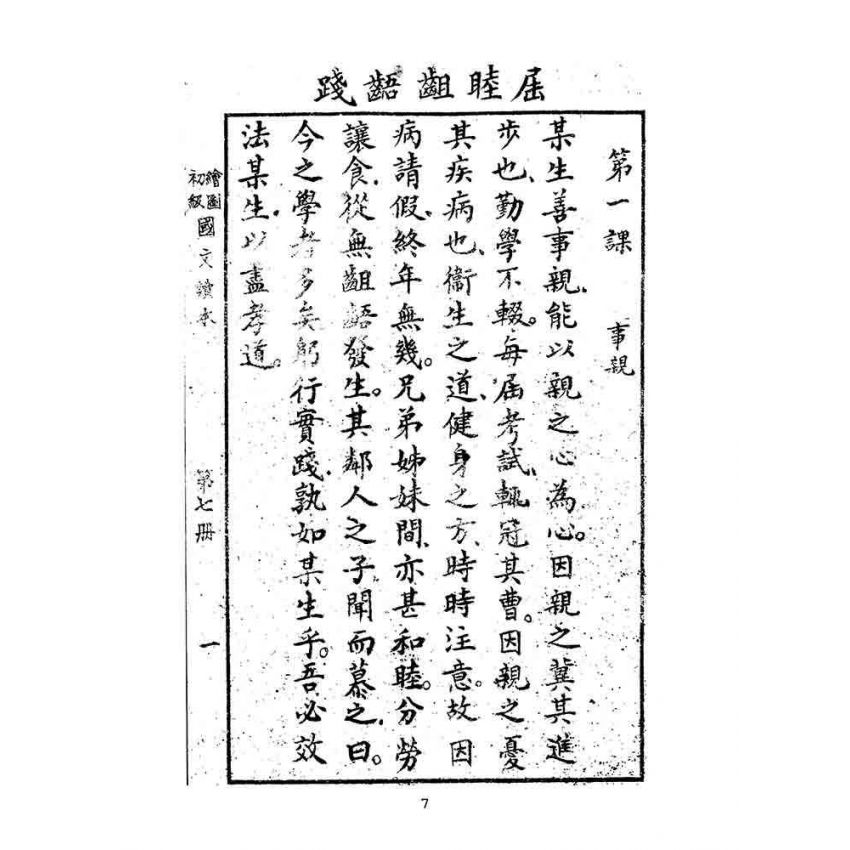 屆睦齟齬踐
第一課 事親
某生善事親、能以親之心為心。因親之冀其進
步也、勤學不輟。每屆考試、輒冠其曹。因親之憂
其疾病也、衞生之道、健身之方、時時注意。故因
病請假、終年無幾。兄弟姊妹間、亦甚和睦。分勞
讓食、從無齟齬發生。其鄰人之子聞而慕之、曰。
今之學者多矣、躬行實踐、孰如某生乎。吾必效
法某生、以盡孝道。
繪圖初級國文讀本 第七冊 一
7